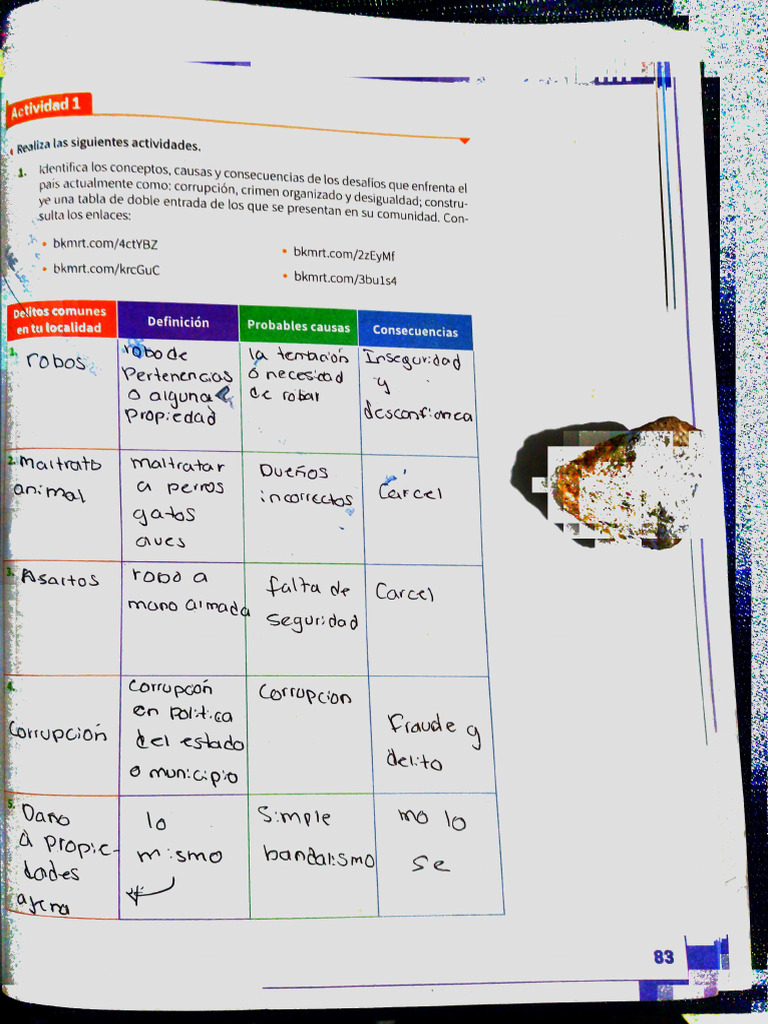 Actividad 1
Realiza las siguientes actividades.
1. Identifica los conceptos, causas y consecuencias de los desafíos que enfrenta el
país actualmente como: corrupción, crimen organizado y desigualdad; constru-
ye una tabla de doble entrada de los que se presentan en su comunidad. Con-
sulta los enlaces:
• bkmrt.com/4ctYBZ
• bkmrt.com/2zEyMf
• bkmrt.com/krcGuC
• bkmrt.com/3bu1s4
Delitos comunes
en tu localidad
Definición
Probables causas
Consecuencias
1. robos
robo de
Pertenencias
o alguna
propiedad
la tentación
o necesidad
de robar
Inseguridad
y
desconfianca
2. Maltrato
animal
maltratar
a perros
gatos
aves
Dueños
incorrectos
Carcel
3. Asaltos
robo a
mano armada
falta de
seguridad
Carcel
4.
Corrupción
Corrupción
en politica
del estado
o municipio
Corrupcion
Fraude y
delito
5. Daño
a propie-
dades
ajena
lo
mismo
Simple
bandalismo
no lo
se
83